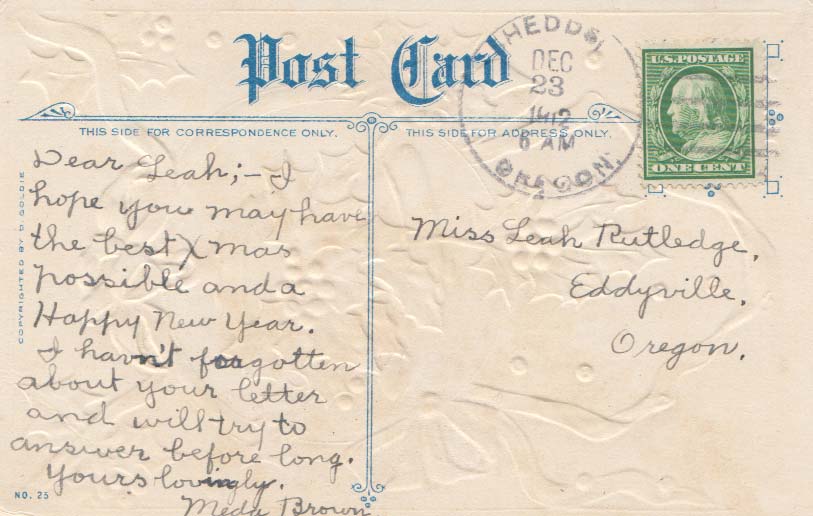 Post Card
SHEDD,
DEC
23
1912
6 AM
OREGON.
U.S. POSTAGE
ONE CENT
THIS SIDE FOR CORRESPONDENCE ONLY.
THIS SIDE FOR ADDRESS ONLY.
COPYRIGHTED BY D. GOLDIE
Dear Leah;– I
hope you may have
the best Xmas
possible and a
Happy New Year.
I havn't forgotten
about your letter
and will try to
answer before long.
Yours lovingly.
Meda Brown
Miss Leah Rutledge,
Eddyville,
Oregon.
NO. 25